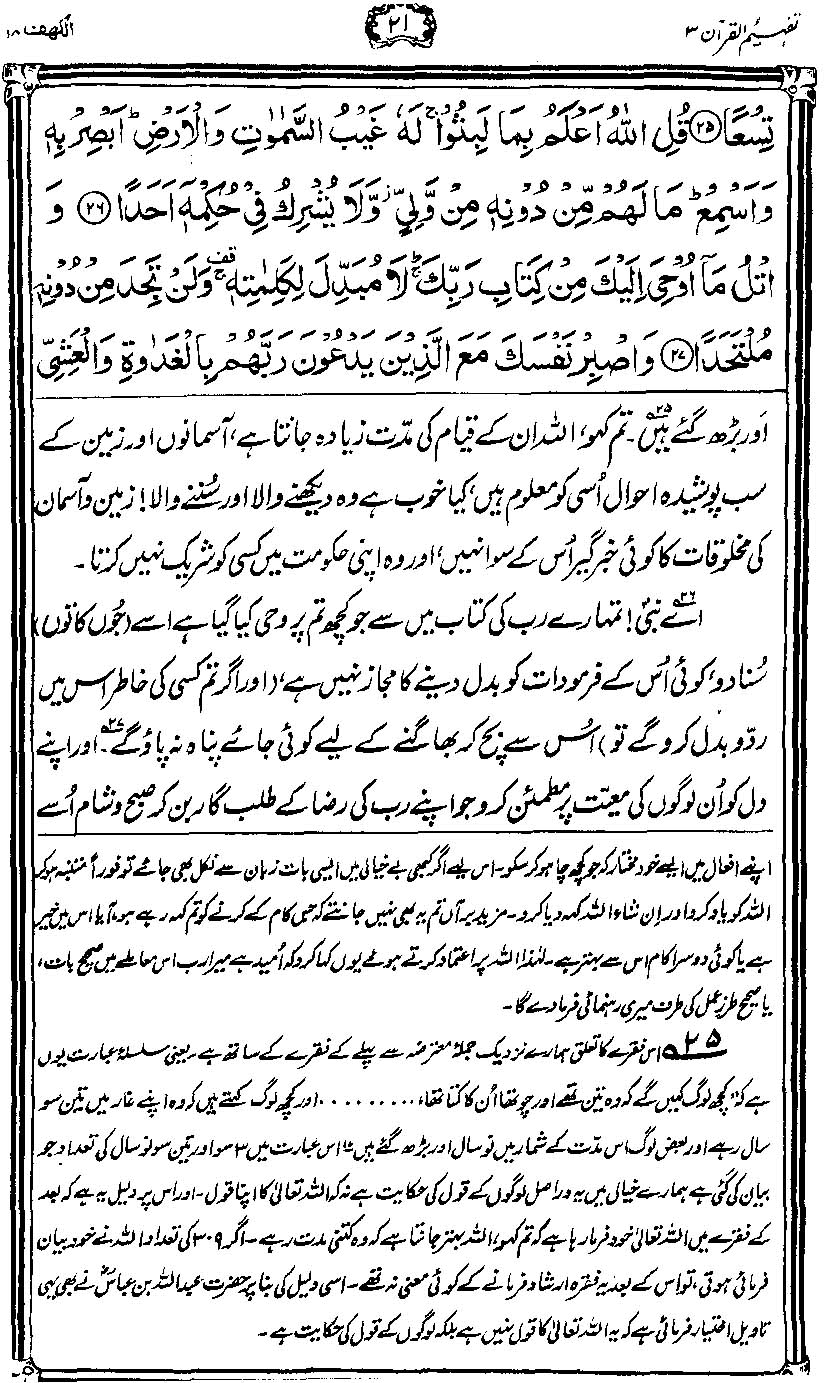 تفہیم القرآن ۳
۲۱
الکہف ۱۸
تِسْعًا ۝۲۵ قُلِ اللّٰهُ اَعْلَمُ بِمَا لَبِثُوْا ۚ لَهٗ غَيْبُ السَّمٰوٰتِ وَالْاَرْضِ ؕ اَبْصِرْ بِهٖ
وَاَسْمِعْ ؕ مَا لَهُمْ مِّنْ دُوْنِهٖ مِنْ وَّلِيٍّ ؗ وَّلَا يُشْرِكُ فِيْ حُكْمِهٖۤ اَحَدًا ۝۲۶ وَ
اتْلُ مَاۤ اُوْحِيَ اِلَيْكَ مِنْ كِتَابِ رَبِّكَ ؕۚ لَا مُبَدِّلَ لِكَلِمٰتِهٖ ۚ۫ وَلَنْ تَجِدَ مِنْ دُوْنِهٖ
مُلْتَحَدًا ۝۲۷ وَاصْبِرْ نَفْسَكَ مَعَ الَّذِيْنَ يَدْعُوْنَ رَبَّهُمْ بِالْغَدٰوةِ وَالْعَشِيِّ
اَور بڑھ گئے ہیں ۲۵۔ تم کہو، اللہ ان کے قیام کی مدّت زیادہ جانتا ہے، آسمانوں اور زمین کے
سب پوشیدہ احوال اُسی کو معلوم ہیں، کیا خوب ہے وہ دیکھنے والا اور سُننے والا! زمین و آسمان
کی مخلوقات کا کوئی خبر گیر اُس کے سوا نہیں، اور وہ اپنی حکومت میں کسی کو شریک نہیں کرتا۔
۲۶ اَے نبیؐ! تمہارے رب کی کتاب میں سے جو کچھ تم پر وحی کیا گیا ہے اسے (جُوں کا تُوں)
سُنا دو، کوئی اُس کے فرمودات کو بدل دینے کا مجاز نہیں ہے، (اور اگر تم کسی کی خاطر اس میں
ردّ و بدل کرو گے تو) اُس سے بچ کر بھاگنے کے لیے کوئی جائے پناہ نہ پاؤ گے ۲۷۔ اور اپنے
دل کو اُن لوگوں کی معیّت پر مطمئن کرو جو اپنے رب کی رضا کے طلب گار بن کر صبح و شام اُسے
اپنے افعال میں ایسے خود مختار کہ جو کچھ چاہو کر سکو۔ اس لیے اگر کبھی بے خیالی میں ایسی بات زبان سے نکل بھی جائے تو فوراً متنبہ ہو کر
اللہ کو یاد کرو اور اِن شاء اللہ کہہ دیا کرو۔ مزید برآں تم یہ بھی نہیں جانتے کہ جس کام کے کرنے کو تم کہہ رہے ہو، آیا اس میں خیر
ہے یا کوئی دوسرا کام اس سے بہتر ہے۔ لہٰذا اللہ پر اعتماد کرتے ہوئے یوں کہا کرو کہ اُمید ہے میرا رب اس معاملے میں صحیح بات،
یا صحیح طرزِ عمل کی طرف میری رہنمائی فرما دے گا۔
۲۵ اس فقرے کا تعلق ہمارے نزدیک جملۂ معترضہ سے پہلے کے فقرے کے ساتھ ہے۔ یعنی سلسلۂ عبارت یوں
ہے کہ ”کچھ لوگ کہیں گے کہ وہ تین تھے اور چوتھا اُن کا کتا تھا، ......... اور کچھ لوگ کہتے ہیں کہ وہ اپنے غار میں تین سو
سال رہے اور بعض لوگ اس مدّت کے شمار میں نو سال اور بڑھ گئے ہیں“ اس عبارت میں ۳ سو اور تین سو نو سال کی تعداد جو
بیان کی گئی ہے ہمارے خیال میں یہ دراصل لوگوں کے قول کی حکایت ہے نہ کہ اللہ تعالیٰ کا اپنا قول۔ اور اس پر دلیل یہ ہے کہ بعد
کے فقرے میں اللہ تعالیٰ خود فرما رہا ہے کہ تم کہو، اللہ بہتر جانتا ہے کہ وہ کتنی مدت رہے۔ اگر ۳۰۹ کی تعداد اللہ نے خود بیان
فرمائی ہوتی، تو اس کے بعد یہ فقرہ ارشاد فرمانے کے کوئی معنی نہ تھے۔ اسی دلیل کی بنا پر حضرت عبداللہ بن عباسؓ نے بھی یہی
تاویل اختیار فرمائی ہے کہ یہ اللہ تعالیٰ کا قول نہیں ہے بلکہ لوگوں کے قول کی حکایت ہے۔